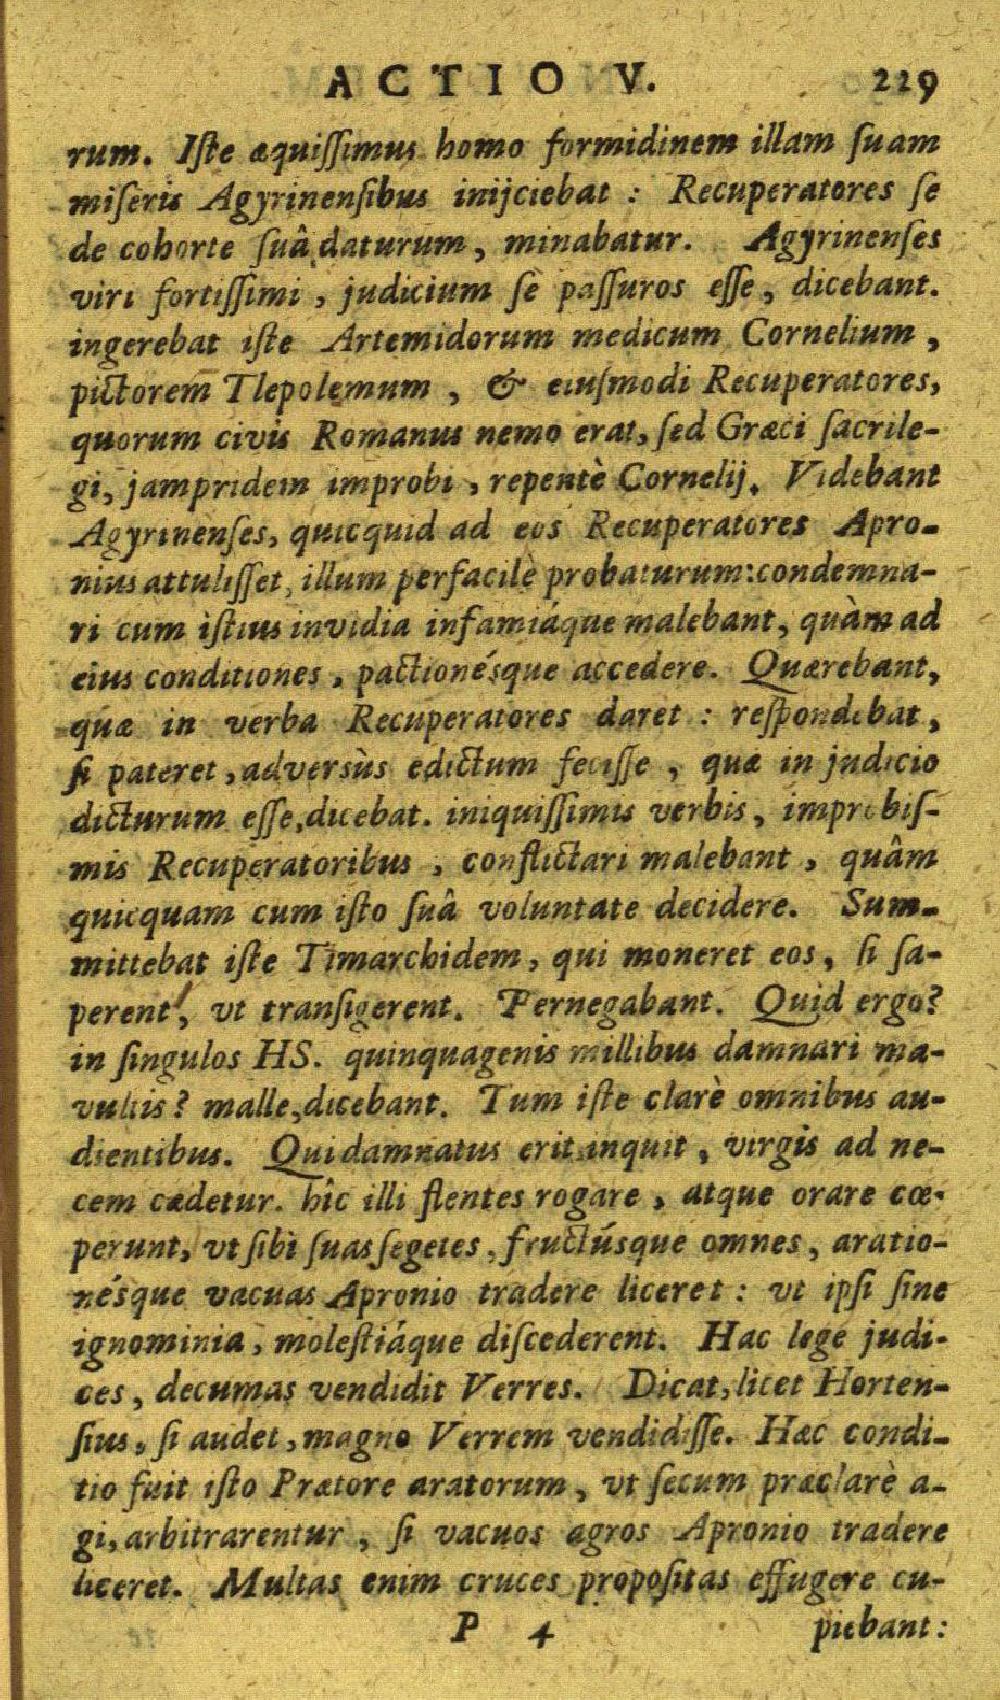 ACTIO V. 229
rum. Iſte æquiſſimus homo formidinem illam ſuam
miſeris Agyrinenſibus inijciebat : Recuperatores ſe
de cohorte ſuâ daturum, minabatur. Agyrinenſes
viri fortiſſimi, judicium ſe paſſuros eſſe, dicebant.
ingerebat iſte Artemidorum medicum Cornelium,
pictorem Tlepolemum, & eiuſmodi Recuperatores,
quorum civis Romanus nemo erat, ſed Græci ſacrile-
gi, jampridem improbi, repentè Cornelij. Videbant
Agyrinenſes, quicquid ad eos Recuperatores Apro-
nius attuliſſet, illum perfacilè probaturum: condemna-
ri cum iſtius invidia infamiáque malebant, quàm ad
eius conditiones, pactionésque accedere. Quærebant,
quæ in verba Recuperatores daret : reſpondebat,
ſi pateret, adversùs edictum feciſſe, quæ in judicio
dicturum eſſe, dicebat. iniquiſſimis verbis, improbiſ-
mis Recuperatoribus, conflictari malebant, quâm
quicquam cum iſto ſuâ voluntate decidere. Sum-
mittebat iſte Timarchidem, qui moneret eos, ſi ſa-
perent, vt tranſigerent. Pernegabant. Quid ergo?
in ſingulos HS. quinquagenis millibus damnari ma-
vultis? malle, dicebant. Tum iſte clarè omnibus au-
dientibus. Qui damnatus erit inquit, virgis ad ne-
cem cædetur. hîc illi flentes rogare, atque orare cœ-
perunt, vt ſibi ſuas ſegetes, fructúsque omnes, aratio-
nésque vacuas Apronio tradere liceret : vt ipſi ſine
ignominia, moleſtiáque diſcederent. Hac lege judi-
ces, decumas vendidit Verres. Dicat, licet Horten-
ſius, ſi audet, magno Verrem vendidiſſe. Hæc condi-
tio fuit iſto Prætore aratorum, vt ſecum præclarè a-
gi, arbitrarentur, ſi vacuos agros Apronio tradere
liceret. Multas enim cruces propoſitas effugere cu-
P 4 piebant: